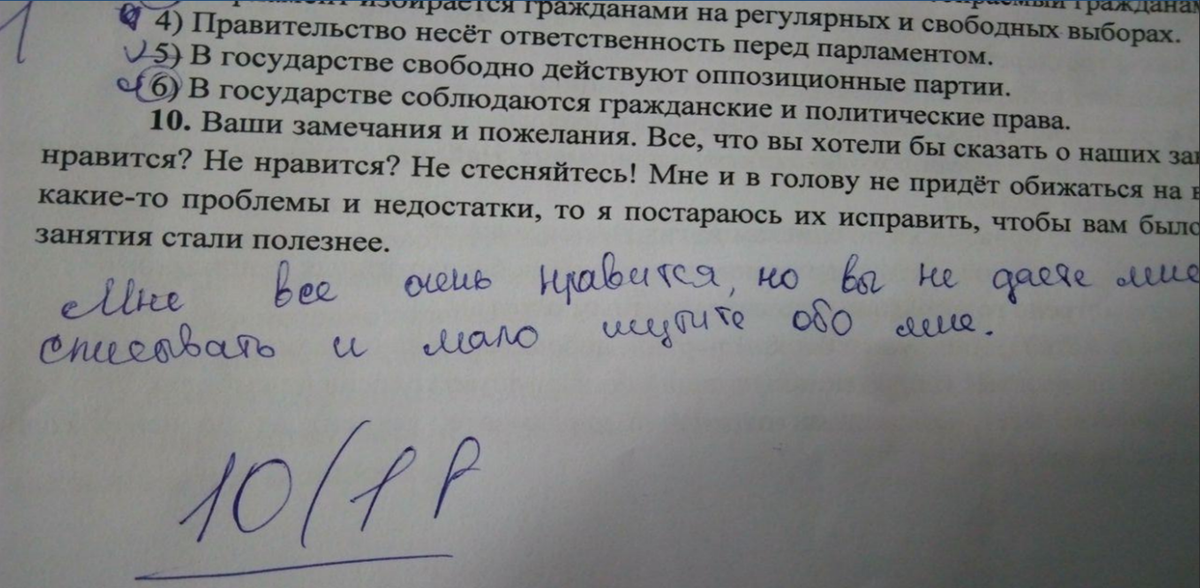 избирается гражданами на регулярных и свободных выборах.
4) Правительство несёт ответственность перед парламентом.
5) В государстве свободно действуют оппозиционные партии.
6) В государстве соблюдаются гражданские и политические права.
10. Ваши замечания и пожелания. Все, что вы хотели бы сказать о наших
нравится? Не нравится? Не стесняйтесь! Мне и в голову не придёт обижаться на
какие-то проблемы и недостатки, то я постараюсь их исправить, чтобы вам было
занятия стали полезнее.
Мне все очень нравится, но вы не даете мне
списывать и мало шутите обо мне.
10